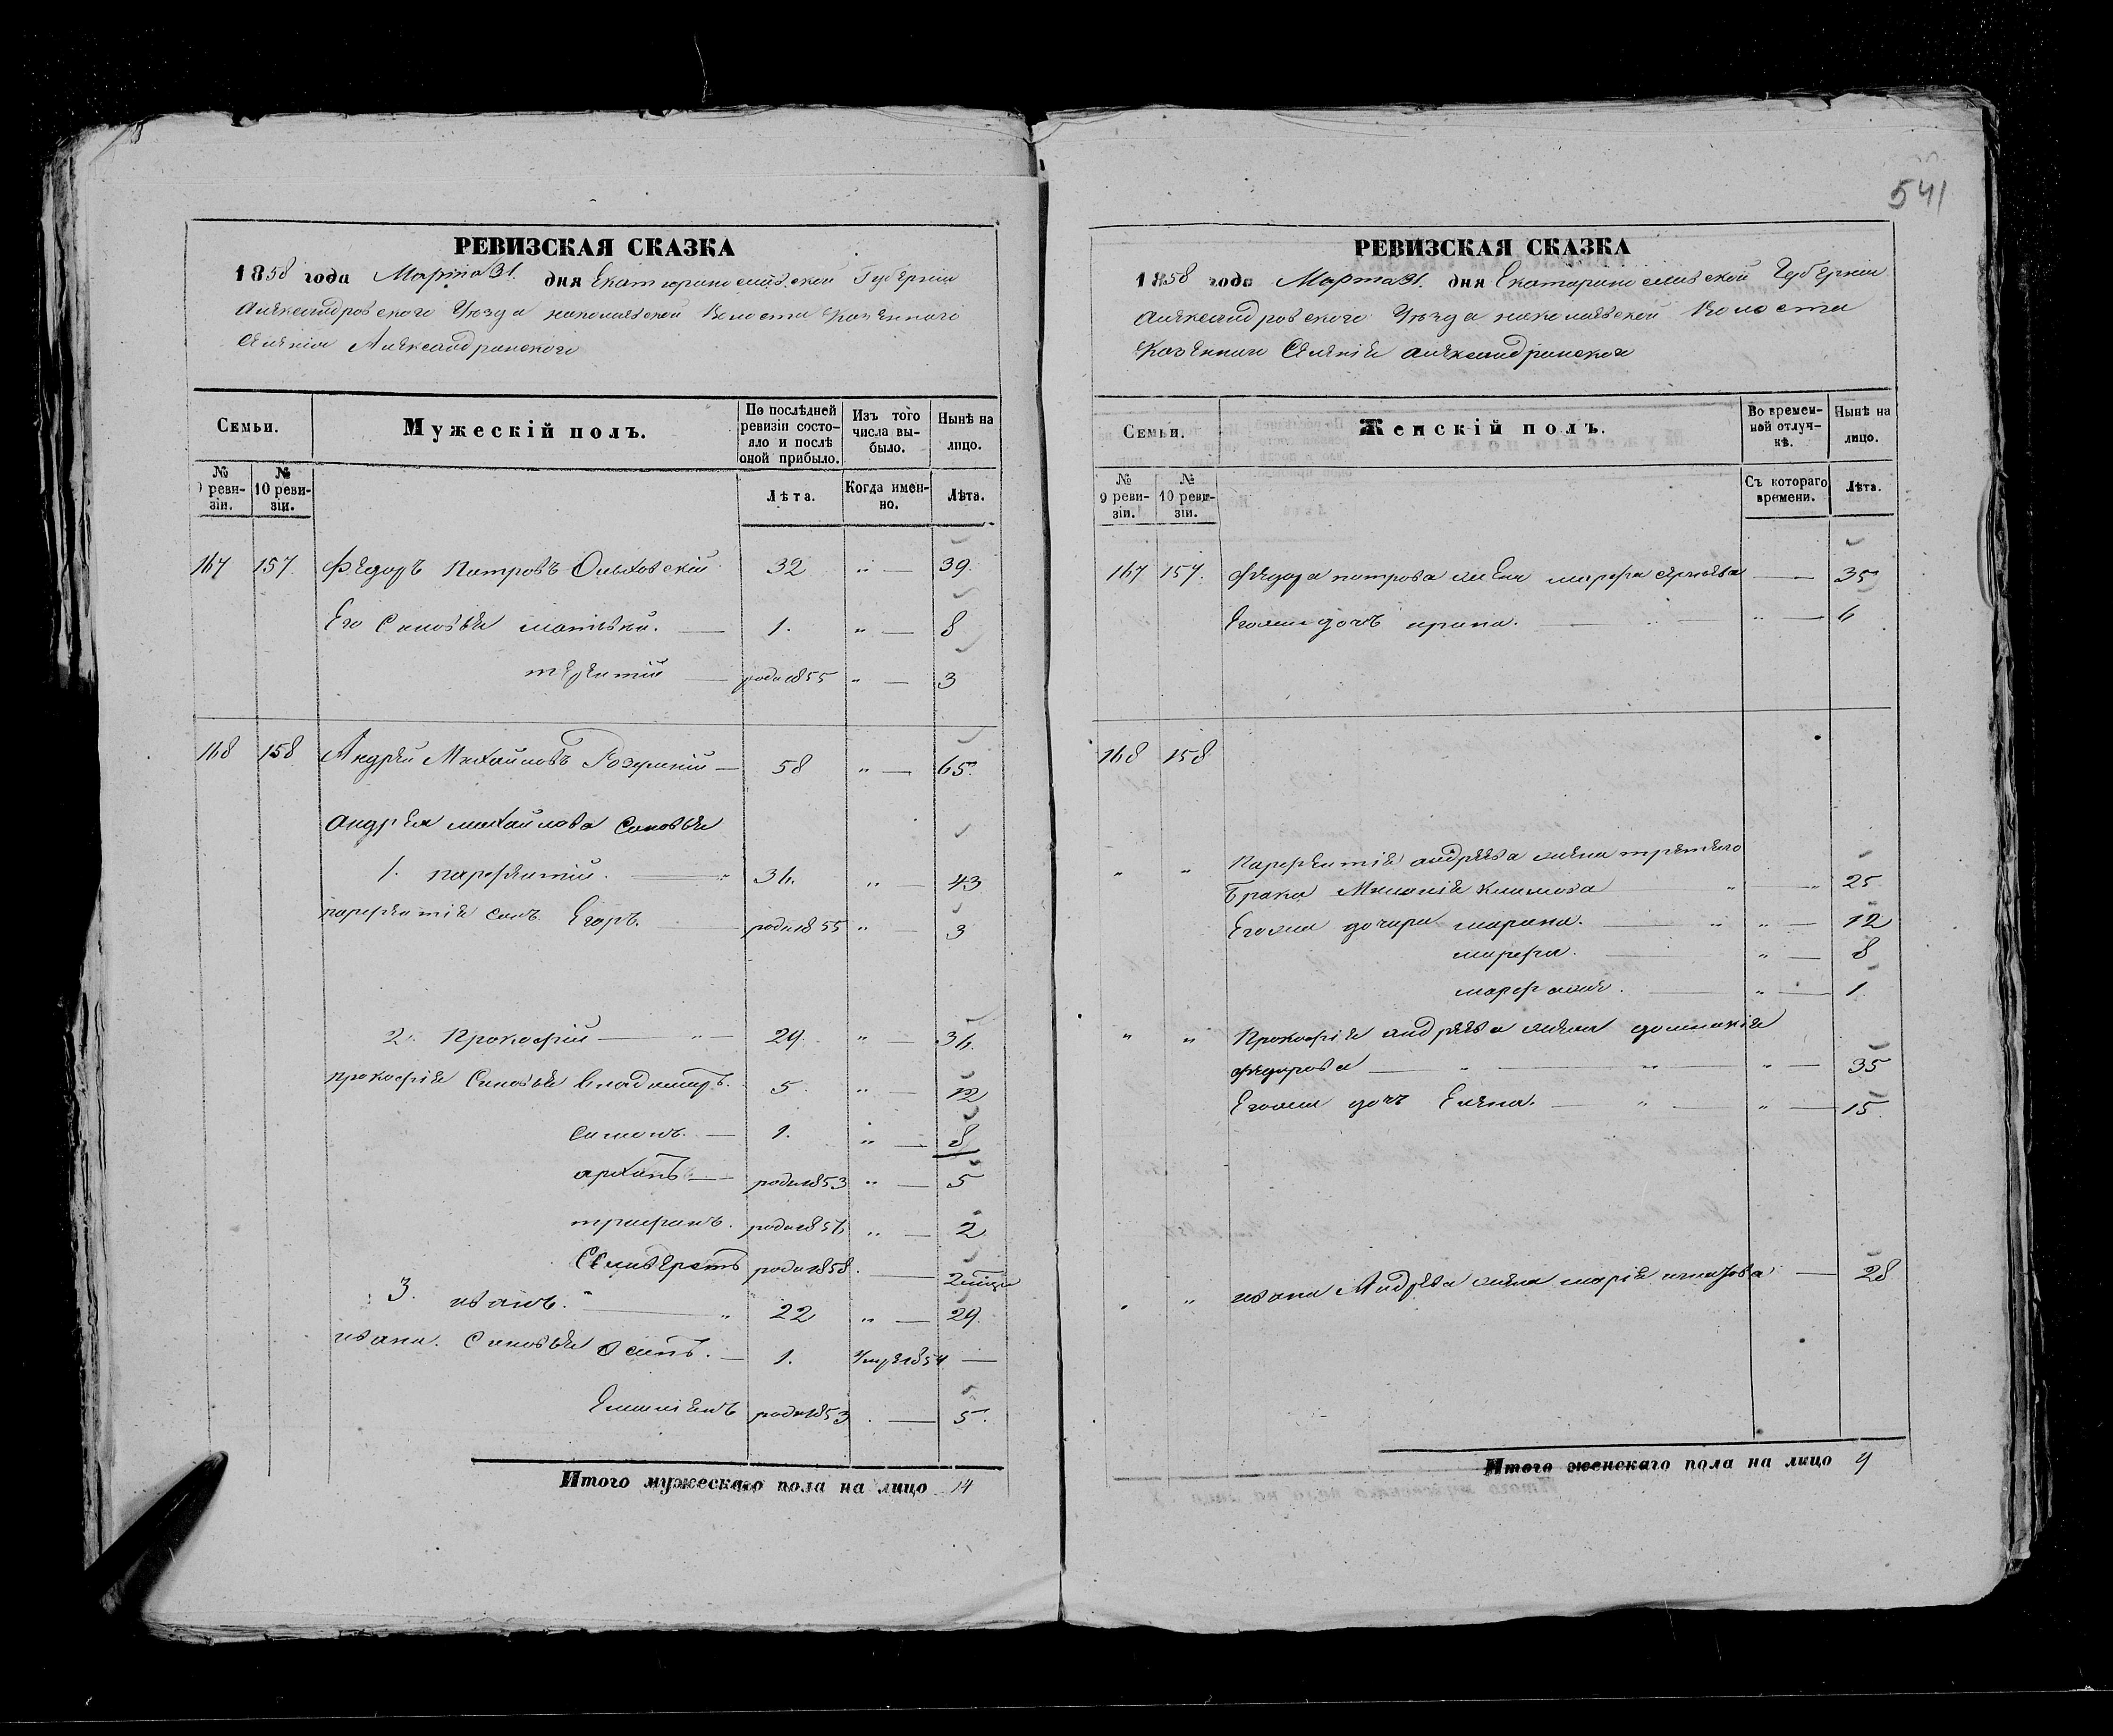 541
РЕВИЗСКАЯ СКАЗКА
1858 года Марта 31. дня Екатеринославской Губернии
Александровского Уезда николаевской Волости Казенного
Селения Александринского
Семьи. Мужескій полъ. По послѣдней ревизіи состояло и послѣ оной прибыло. Изъ того числа выбыло. Нынѣ на лицо.
№ 9 ревизіи. № 10 ревизіи. Лѣта. Когда именно. Лѣта.
167 157. Федоръ Петровъ Ольховский 32 " — 39.
Его Сыновья матвей. — 1. " — 8
терентий — роди 1855 " — 3
168 158 Андрей Михайловъ — 58 " — 65.
андрея михайлова Сыновья
1. парфентий. — " 36. " — 43
парфентия сынъ Егоръ. — роди 1855 " — 3
2. Прокофий — " — 29. " — 36.
прокофия Сыновья владимиръ. 5. " — 12
симонъ. — 1. " — 8
архипъ — роди 1853 " — 5
трифонъ. роди 1856 " — 2
Селиверстъ роди 1858. — 2 мѣсяц
3. иванъ. — " 22 " — 29.
ивана. Сыновья осипъ. — 1. умре 1854 —
Емилиянъ роди 1853. — 5.
Итого мужескаго пола на лицо 14
РЕВИЗСКАЯ СКАЗКА
1858 года Марта 31. дня Екатеринославской Губернии
Александровского Уезда николаевской Волости
Казенного Селения александринского
Семьи. Женскій полъ. Во временной отлучкѣ. Нынѣ на лицо.
№ 9 ревизіи. № 10 ревизіи. Съ котораго времени. Лѣта.
167 157. федора петрова жена марфа — 35
Егожи дочь ирина. — " — 6
168 158
" " Парфентия андреева жена третьего
брака Милания климова " " 25
Егожи дочери марина. — " " — 12
марфа. — " — 8
— " — 1.
" " Прокофия андреева жена домникия
федорова — " — " " — 35
Егожи дочь Елена. — " — " — 15.
" ивана Андреева жена мария — 28
Итого женскаго пола на лицо 9